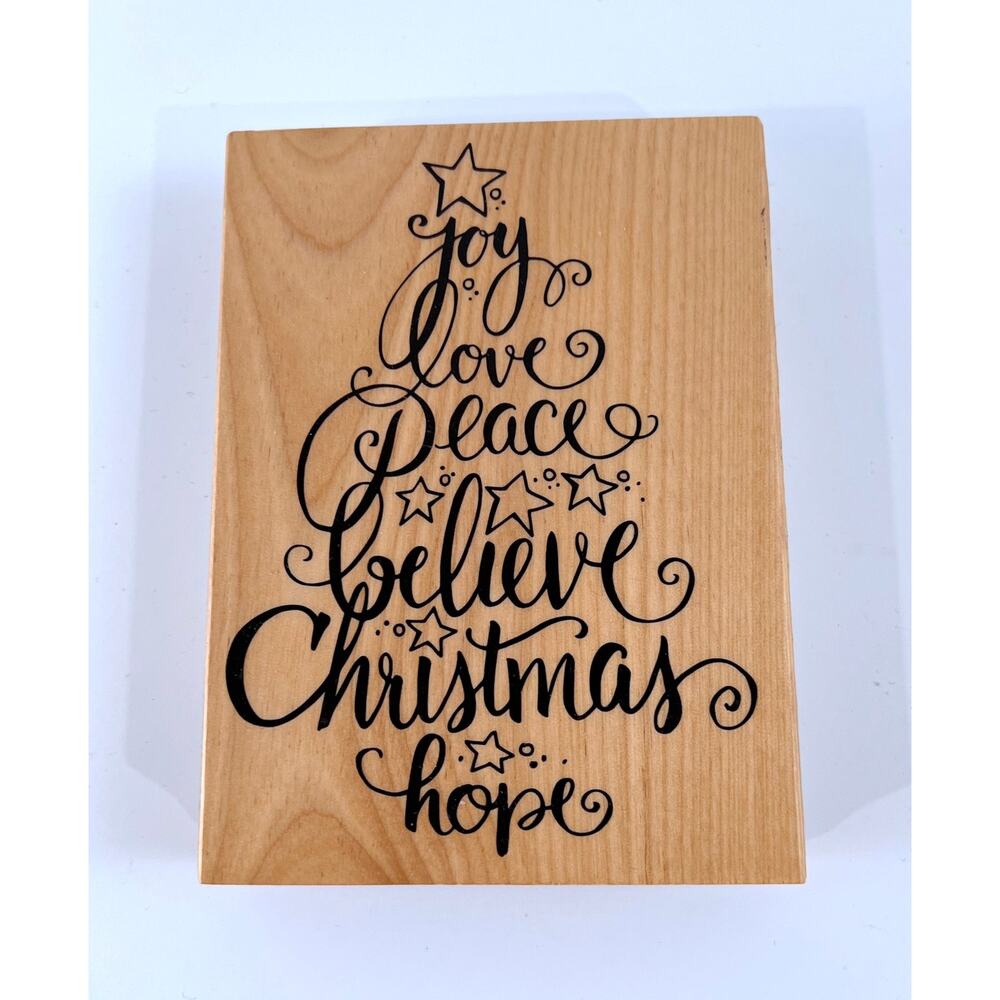 joy
love
Peace
believe
Christmas
hope